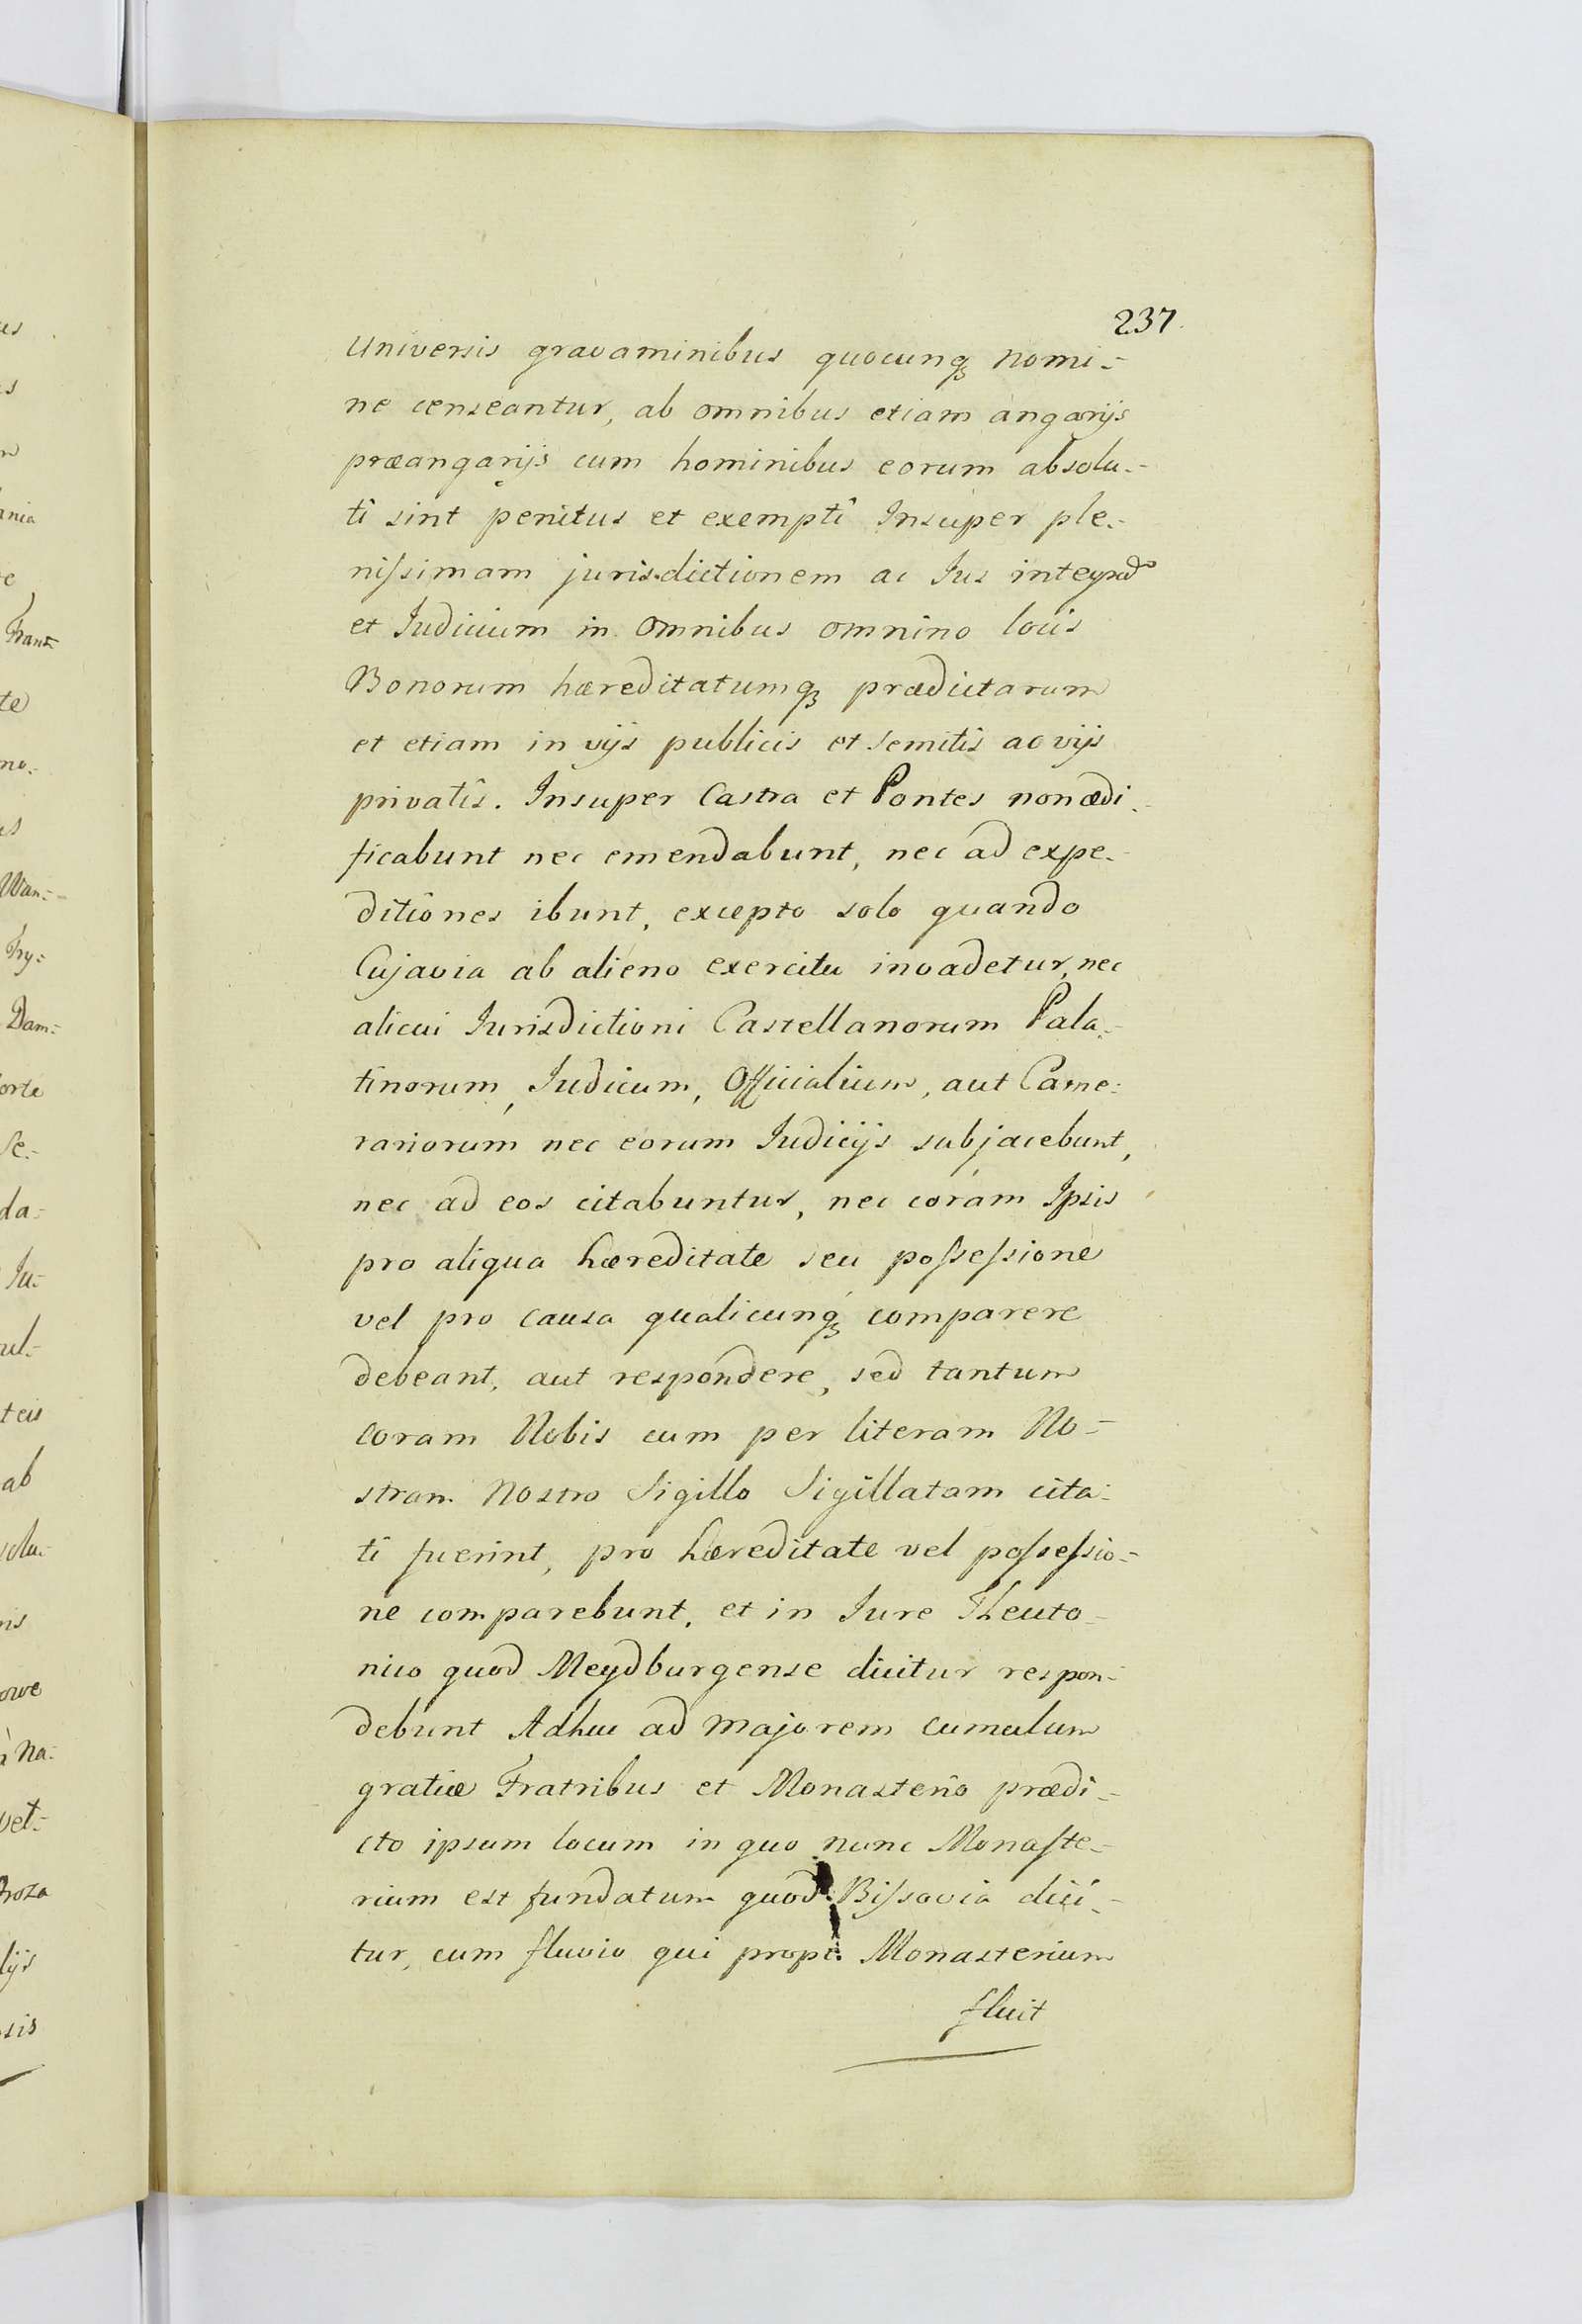 237.
universis gravaminibus quocunq nomi-
ne censeantur, ab omnibus etiam angarijs
præangarijs cum hominibus eorum absolu-
ti sint penitus et exempti Insuper ple-
nissimam jurisdictionem ac Jus
et Judicium in omnibus omnino locis
Bonorum hæreditatumq prædictarum
et etiam in vijs publicis et semitis ac vijs
privatis. Insuper Castra et Pontes non ædi-
ficabunt nec emendabunt, nec ad expe-
ditiones ibunt, excepto solo quando
Cujavia ab alieno exercitu invadetur, nec
alicui Jurisdictioni Castellanorum Pala-
tinorum, Judicum, Officialium, aut Came-
rariorum nec eorum Judicijs subjacebunt,
nec ad eos citabuntur, nec coram Ipsis
pro aliqua hæreditate seu possessione
vel pro causa qualicunq comparere
debeant, aut respondere, sed tantum
coram Nobis cum per literam No-
stram Nostro Sigillo Sigillatam cita-
ti fuerint, pro hæreditate vel possessio-
ne comparebunt, et in Jure Theuto-
nico quod Meydburgense dicitur respon-
debunt Adhuc ad majorem cumulum
gratiæ Fratribus et Monasterio prædi-
cto ipsum locum in quo nunc Monaste-
rium est fundatum quod Bissovia dici-
tur, cum fluvio qui prope Monasterium
fluit
us
s
ania
te
Frant-
te
no-
us
Wan-
Try-
Dam-
orte
Se-
da-
Ju-
ul-
teis
ab
solu-
nis
owe
à Na-
vet-
roza
lijs
sis